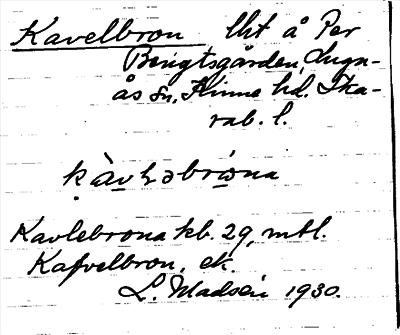 Kavelbron lht å Per
Bengtsgården, Lugn-
ås sn, Kinne hd. Ska-
rab. l.
Kavlebrona kb. 29, mtl.
Kafvelbron, ek.
L. Madsén 1930.